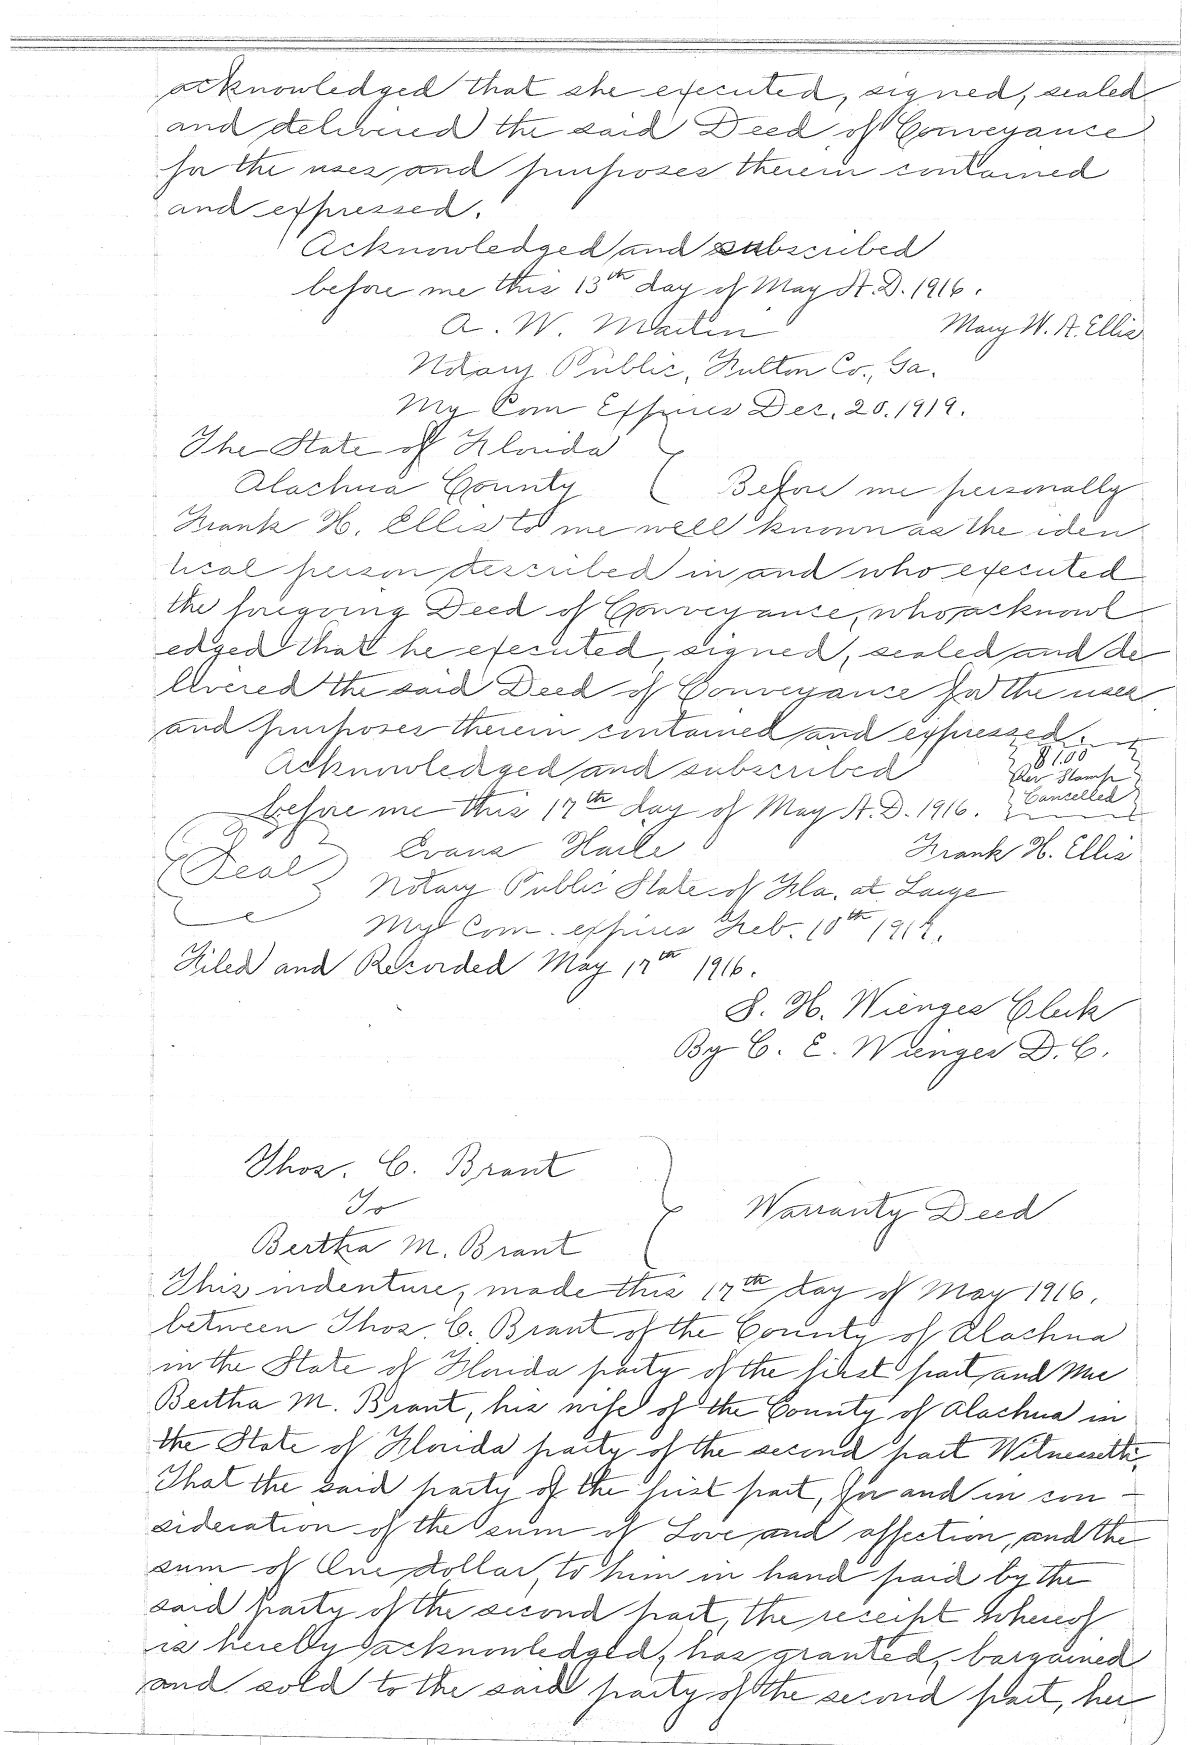 acknowledged that she executed, signed, sealed
and delivered the said Deed of Conveyance
for the uses and purposes therein contained
and expressed.
Acknowledged and subscribed
before me this 13th day of May A.D. 1916.
A. W. Martin Mary W. A. Ellis
Notary Public, Fulton Co., Ga.
My Com Expires Dec. 20. 1919.
The State of Florida
Alachua County Before me personally
Frank H. Ellis to me well known as the iden
tical person described in and who executed
the foregoing Deed of Conveyance, who acknowl
edged that he executed, signed, sealed and de
livered the said Deed of Conveyance for the uses
and purposes therein contained and expressed.
$1.00
Acknowledged and subscribed Rev Stamp
before me this 17th day of May A.D. 1916. Cancelled
Seal Evans Haile Frank H. Ellis
Notary Public State of Fla. at Large
My Com. expires Feb. 10th 1919.
Filed and Recorded May 17th 1916.
S. H. Wienges Clerk
By C. E. Wienges D. C.
Thos. C. Brant
To Warranty Deed
Bertha M. Brant
This indenture, made this 17th day of May 1916.
between Thos. C. Brant of the County of Alachua
in the State of Florida party of the first part, and Mrs
Bertha M. Brant, his wife of the County of Alachua in
the State of Florida party of the second part Witnesseth,
That the said party of the first part, for and in con-
sideration of the sum of Love and affection, and the
sum of One dollar, to him in hand paid by the
said party of the second part, the receipt whereof
is hereby acknowledged, has granted, bargained
and sold to the said party of the second part, her